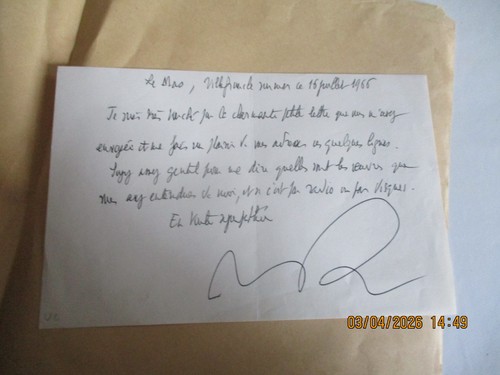 Le Mas, Villefranche sur mer ce 15 juillet 1966
Je suis très touché par la charmante petite lettre que vous m'avez
envoyée et me fais un plaisir de vous adresser ces quelques lignes.
Soyez assez gentil pour me dire quelles sont les oeuvres que
vous avez entendues de moi, et si c'est par radio ou par disques.
En toute sympathie
03/04/2026 14:49